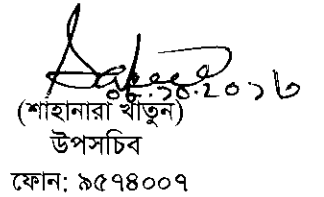 ০৮.১০.২০১৬
(শাহানারা খাতুন)
উপসচিব
ফোন: ৯৫৭৪০০৭